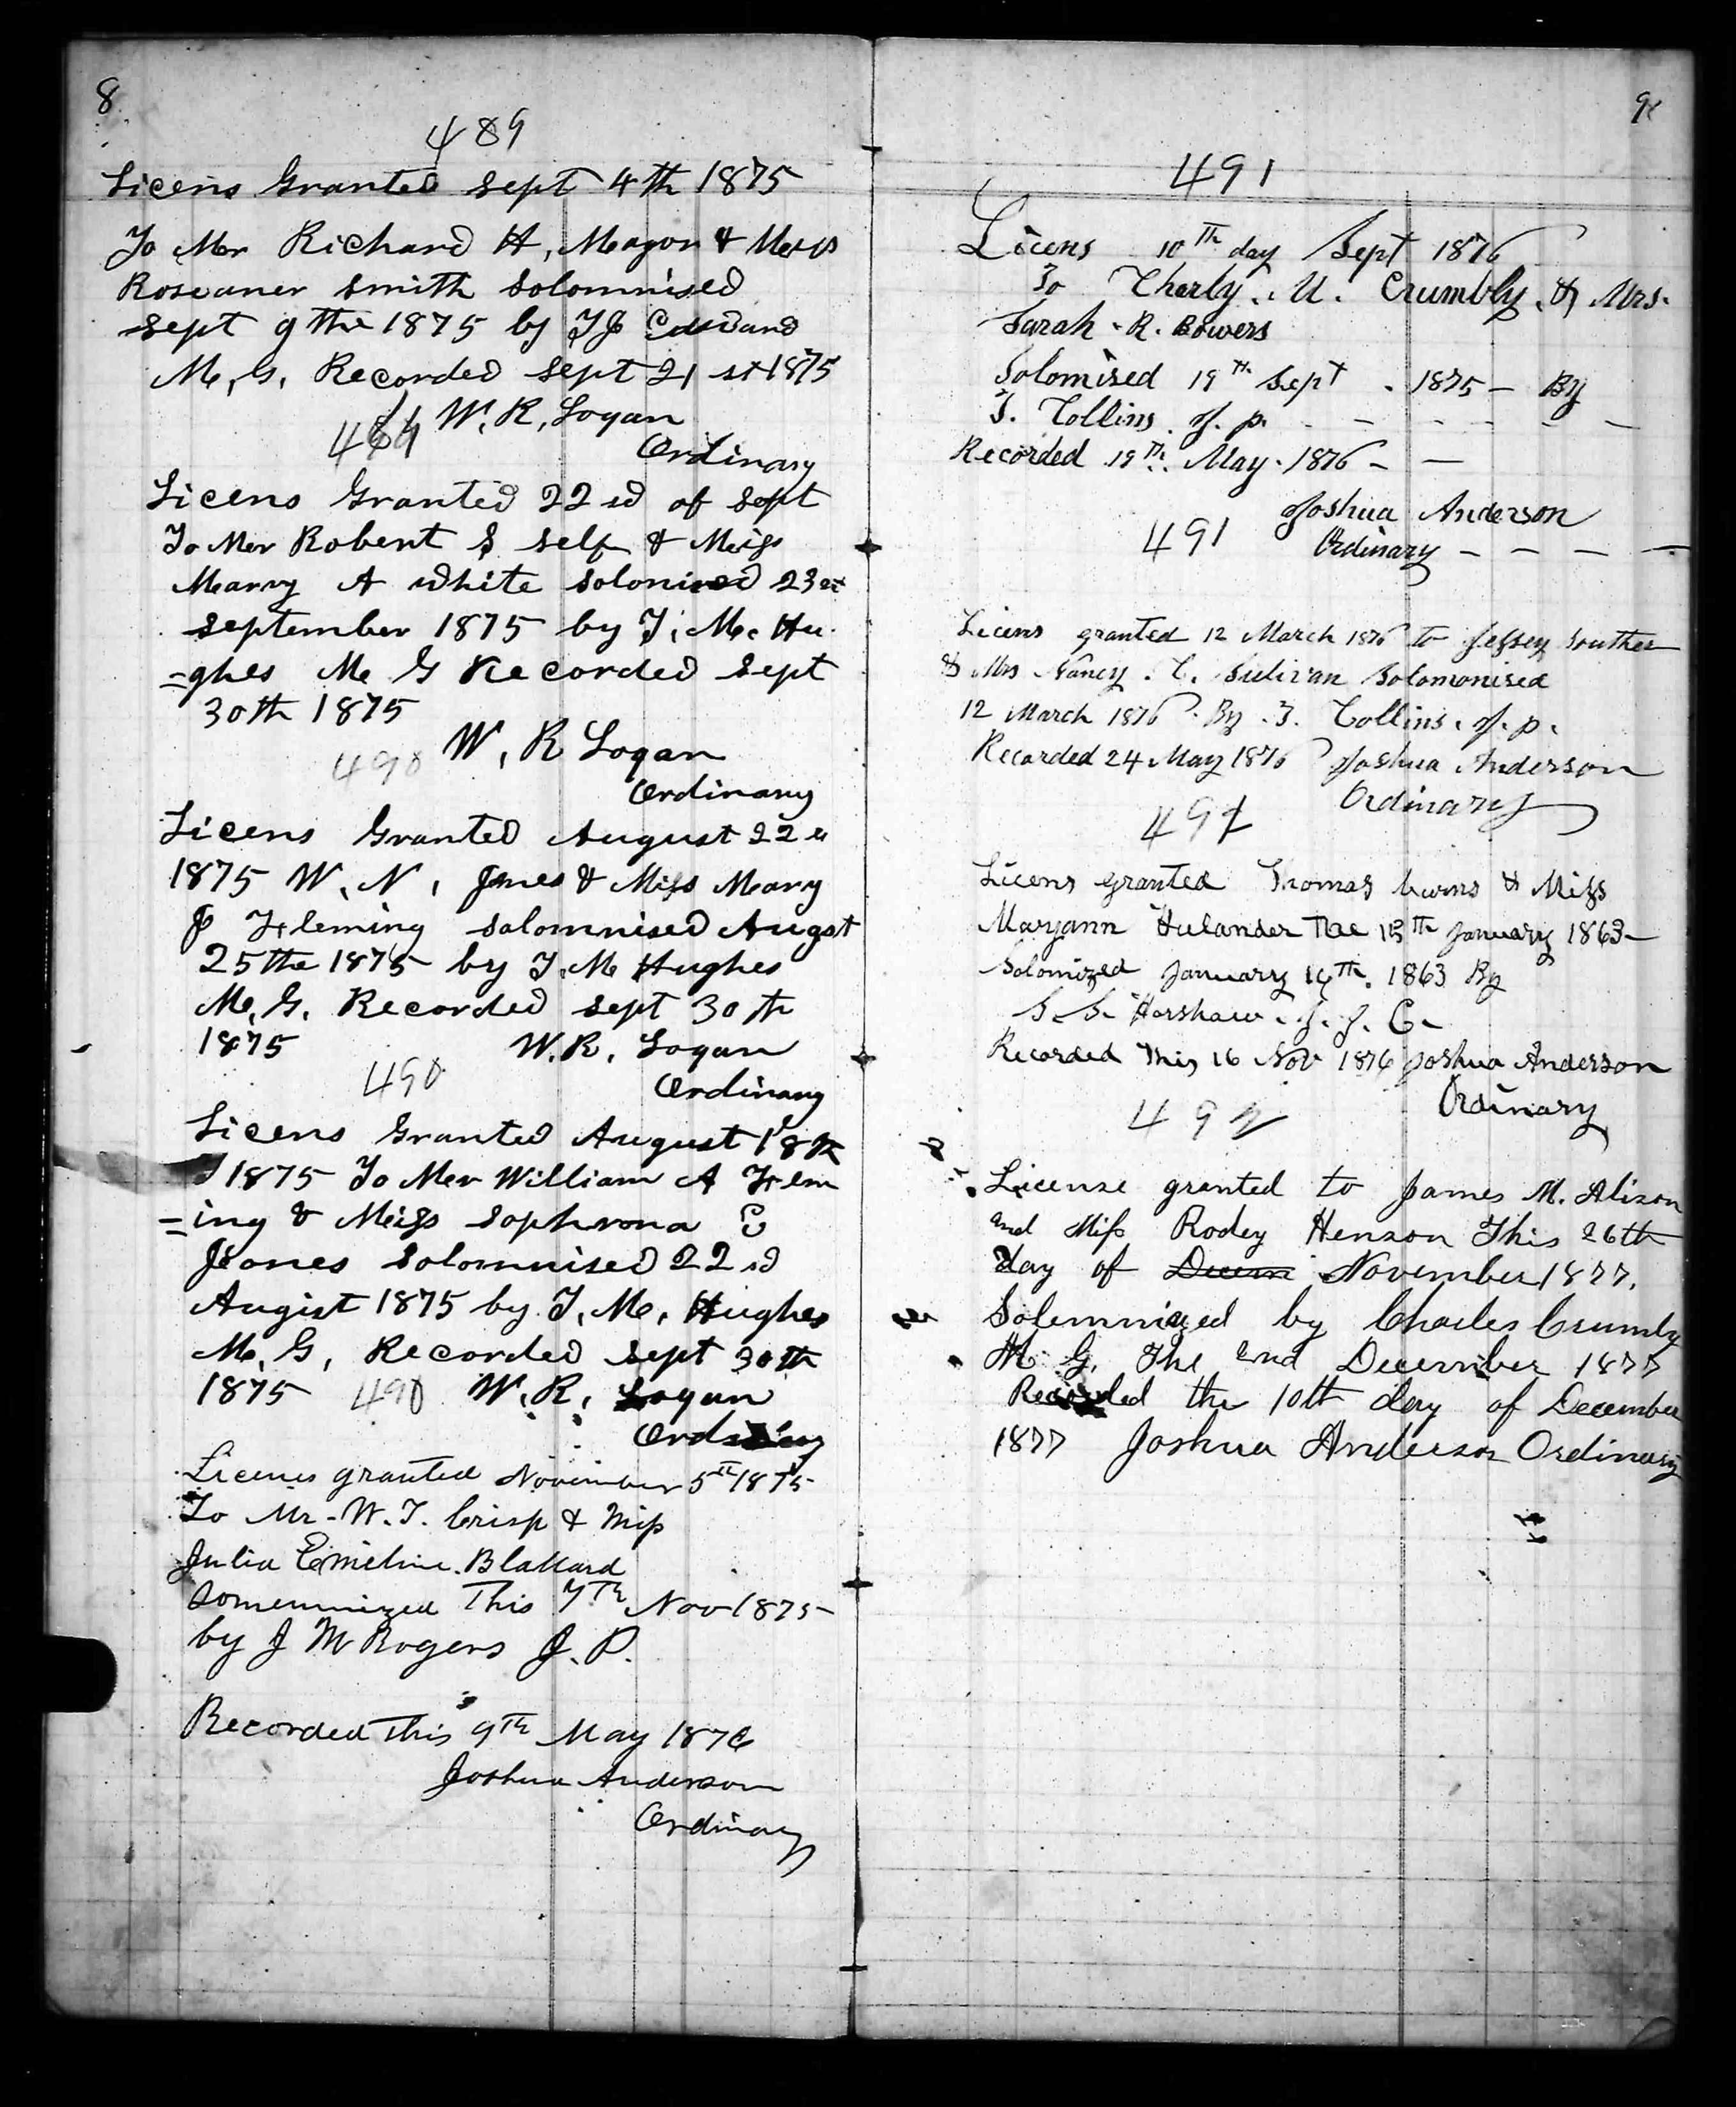 8
489
Licens Granted Sept 4th 1875
To Mr Richard H, Meazon & Miss
Roseaner Smith Solomnised
Sept 9the 1875 by TJ Edward
M, G, Recorded Sept 21 st 1875
W. R, Logan
489
Ordinary
Licens Granted 22 sd of Sept
To Mr Robert S Self & Miss
Marry A White soloniced 23
September 1875 by T. M. Hu
=ghes M G Recorded Sept
30th 1875
W, R Logan
490
Ordinary
Licens Granted August 22
1875 W. N, Jones & Miss Mary
J Fleming salomnised Augst
25the 1875 by T. M Hughes
M, G. Recorded sept 30 th
1875 W. R, Logan
490
Ordinary
Licens Granted August 18th
1875 To Mr William A Flem
=ing & Miss Sophrona E
Jones Solomnised 22 sd
August 1875 by T. M, Hughes
M, G, Recorded Sept 30th
1875 490 W. R, Logan
Ordinary
Licenes granted November 5th 1875
To Mr - W. T. Crisp & Miss
Julia Emeline Ballard
Somemnized This 7th Nov 1875
by J M Rogers J. P.
Recorded this 9th May 1876
Joshua Anderson
Ordinary
9
491
Licens 10th day Sept 1876
To Charly. U. Crumbly. & Mrs.
Sarah . R. Bowers
Solomised 19th Sept . 1875 - By
J. Collins J. p.
Recorded 19th. May. 1876 -
Joshua Anderson
491 Ordinary
Licens granted 12 March 1876 to Jessey Souther
& Mrs Nancy . C. Sulivan Solomonised
12 March 1876 . By . J. Collins. J. p.
Recorded 24 May 1876 Joshua Anderson
Ordinary
492
Licens granted Thomas burns & Miss
Maryann Hulander The 15th January 1863
Solomized January 16th. 1863 By
S. S. Harshaw . J. J. C.
Recorded This 16 Nov 1876 Joshua Anderson
Ordinary
492
License granted to James M. Alison
and Miss Rodey Henson This 26th
day of Decem November 1877.
Solemnized by Charles Crumly
M. G. The 2nd December 1877
Recorded the 10th day of December
1877 Joshua Anderson Ordinary